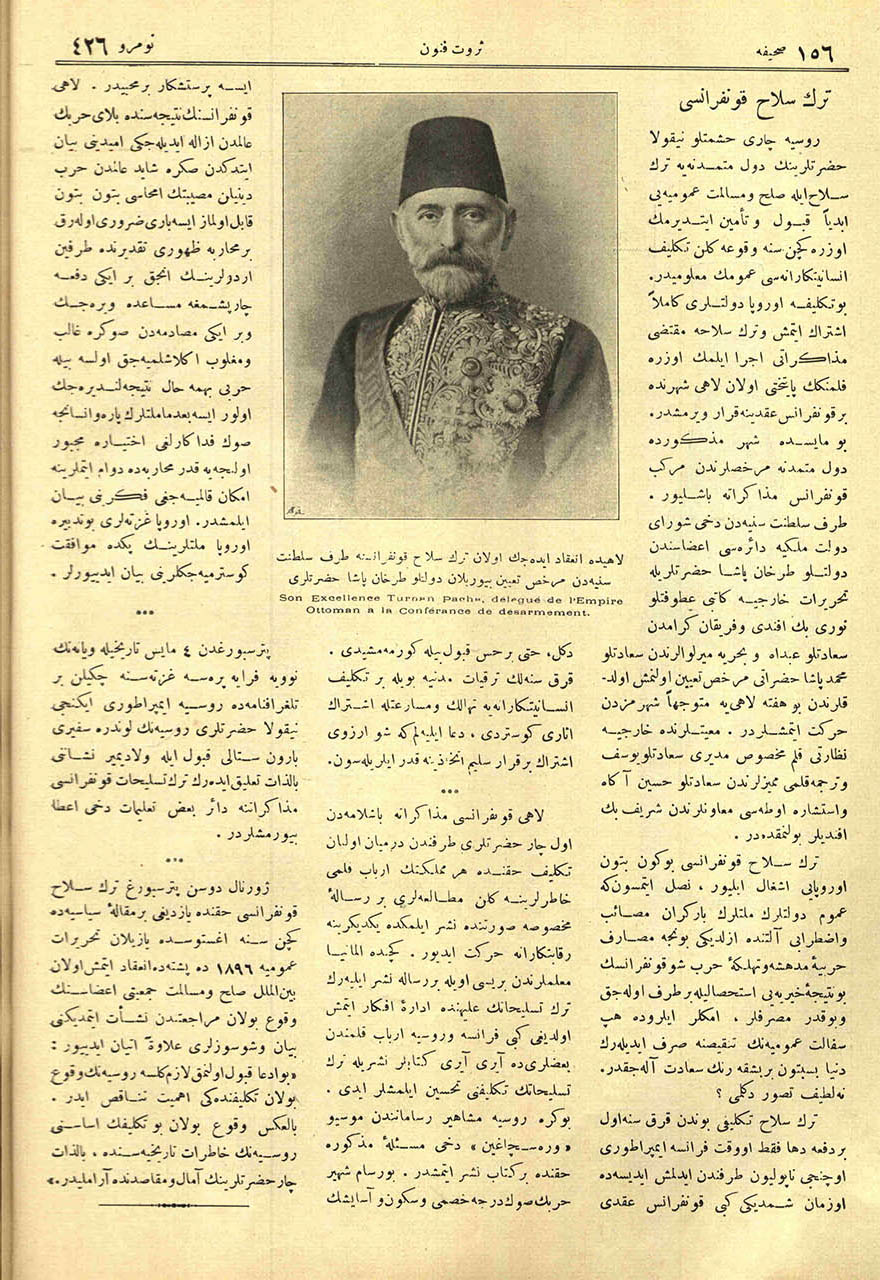 صحیفه ١٥٦
ثروت فنون
نومرو ٤٢٦
ترك سلاح قونفرانسی
روسیه چاری حشمتلو نیقولا
حضرتلرینك دول متمدنه‌یه ترك
سلاح ایله صلح و مسالمت عمومیه‌یی
ابدیاً قبول و تأمین ایتدیرمك
اوزره کچن سنه وقوعه کلن تکلیف
انسانیتکارانه‌سی عمومك معلومیدر.
بو تکلیفه اوروپا دولتلری کاملاً
اشتراك ایتمش و ترك سلاحه مقتضی
مذاکراتی اجرا ایلمك اوزره
فلمنکك پایتختی اولان لاهی شهرنده
بر قونفرانس عقدینه قرار ویرمشدر.
بو مایسده شهر مذکورده
دول متمدنه مرخصلرندن مرکب
قونفرانس مذاکراته باشلیور .
طرف سلطنت سنیه‌دن دخی شورای
دولت ملکیه دائره‌سی اعضاسندن
دولتلو طرخان پاشا حضرتلریله
تحریرات خارجیه کاتبی عطوفتلو
نوری بك افندی و فریقان کرامدن
سعادتلو عبداه و بحریه میرلوالرندن سعادتلو
محمد پاشا حضراتی مرخص تعیین اولنمش اولد-
قلرندن بو هفته لاهی‌یه متوجهاً شهرمزدن
حرکت ایتمشلردر . معیتلرنده خارجیه
نظارتی قلم مخصوص مدیری سعادتلو یوسف
و ترجمه قلمی ممیزلرندن سعادتلو حسین آکاه
و استشاره اوطه‌سی معاونلرندن شریف بك
افندیلر بولنمقده‌در .
ترك سلاح قونفرانسی بوکون بتون
اوروپایی اشغال ایلیور ، نصل ایتمسون‌که
عموم دولتلرك ملتلرك بارکران مصائب
و اضطرابی آلتنده ازلدیکی بونجه مصارف
حربیهٔ مدهشه و تهلکهٔ حرب شو قونفرانسك
بو نتیجهٔ خیریه‌یی استحصالیله بر طرف اوله‌جق
و بوقدر مصرفلر ، امکلر ایلروده هپ
سفالت عمومیه‌نك تنقیصنه صرف ایدیله‌رك
دنیا بسبتون بر بشقه رنك سعادت آله‌جقدر.
نه لطیف تصور دکلی ؟
ترك سلاح تکلیفی بوندن قرق سنه اول
بر دفعه دها فقط اووقت فرانسه ایمپراطوری
اوچنجی ناپولیون طرفندن ایدلمش ایدیسه‌ده
اوزمان شمدیکی کبی قونفرانس عقدی
لاهیده انعقاد ایده‌جك اولان ترك سلاح قونفرانسنه طرف سلطنت
سنیه‌دن مرخص تعیین بیوریلان دولتلو طرخان پاشا حضرتلری
Son Excellence Turnan Pacha, délegué de l'Empire
Ottoman a la Conférance de désarmement.
دکل، حتی بر حس قبول بیله کورمه‌مشیدی .
قرق سنه‌لك ترقیات مدنیه بویله بر تکلیف
انسانیتکارانه‌یه تهالك و مسارعتله اشتراك
اثاری کوستردی ، دعا ایلیه‌لم‌که شو ارزوی
اشتراك بر قرار سلیم اتخاذینه قدر ایلریله‌سون.
***
لاهی قونفرانسی مذاکراته باشلامه‌دن
اول چار حضرتلری طرفندن درمیان اولنان
تکلیف حقنده هر مملکتك ارباب قلمی
خاطرلرینه کلن مطالعه‌لری بر رسالهٔ
مخصوصه صورتنده نشر ایلمکده یکدیکرینه
رقابتکارانه حرکت ایدیور . کچنده المانیا
معلملرندن بریسی اویله بر رساله نشر ایلیه‌رك
ترك تسلیحاتك علیهنده ادارهٔ افکار ایتمش
اولدیغی کبی فرانسه و روسیه ارباب قلمندن
بعضلری‌ده آیری آیری کتابلر نشریله ترك
تسلیحاتك تکلیفنی تحسین ایلمشلر ایدی .
بوکره روسیه مشاهیر رسامانندن موسیو
« وره‌سچاغین » دخی مسئلهٔ مذکوره
حقنده بر کتاب نشر ایتمشدر . بو رسام شهیر
حربك صوك درجه خصمی و سکون و آسایشك
ایسه پرستشکار بر محبیدر . لاهی
قونفرانسنك نتیجه‌سنده بلای حربك
عالمدن ازاله ایدیله‌جکی امیدینی بیان
ایتدکدن صکره شاید عالمدن حرب
دینیلن مصیبتك امحاسی بتون بتون
قابل اولماز ایسه باری ضروری اوله‌رق
بر محاربه ظهوری تقدیرنده طرفین
اردولرینك انجق بر ایکی دفعه
چارپشمغه مساعده ویره‌جك
و بر ایکی مصادمه‌دن صوکره غالب
و مغلوب اکلاشلمیه‌جق اولسه بیله
حربی بهمه حال نتیجه‌لندیره‌جك
اولور ایسه بعدما ملتلرك پاره و انسانجه
صوك فداکارلغی اختیاره مجبور
اولنجه‌یه قدر محاربه‌ده دوام ایتملرینه
امکان قالمیه‌جغی فکرینی بیان
ایلمشدر. اوروپا غزته‌لری بو تدبیره
اوروپا ملتلرینك پکده موافقت
کوسترمیه‌جکلرینی بیان ایدیورلر .
***
پترسبورغدن ٤ مایس تاریخیله ویانه‌نك
نوویه فرایه پره‌سه غزته‌سنه چکیلن بر
تلغرافنامه‌ده روسیه ایمپراطوری ایکنجی
نیقولا حضرتلری روسیه‌نك لوندره سفیری
بارون ستالی قبول ایله ولادیمیر نشاننی
بالذات تعلیق ایده‌رك ترك تسلیحات قونفرانسی
مذاکراتنه دائر بعض تعلیمات دخی اعطا
بیورمشلردر .
***
ژورنال دوسن پترسبورغ ترك سلاح
قونفرانسی حقنده یازدیغی بر مقالهٔ سیاسیه‌ده
کچن سنه اغستوسده یازیلان تحریرات
عمومیه ١٨٩٦ ده پشته‌ده انعقاد ایتمش اولان
بین‌الملل صلح و مسالمت جمعیتی اعضاسنك
وقوع بولان مراجعتندن نشأت ایتمدیکنی
بیان و شو سوزلری علاوةً اتیان ایدیور :
«بو ادعا قبول اولنمق لازم کلسه روسیه‌نك وقوع
بولان تکلیفنده‌کی اهمیت تناقص ایدر .
بالعکس وقوع بولان بو تکلیفك اساسنی
روسیه‌نك خاطرات تاریخیه‌سنده ، بالذات
چار حضرتلرینك آمال و مقاصدنده آراملیدر.»